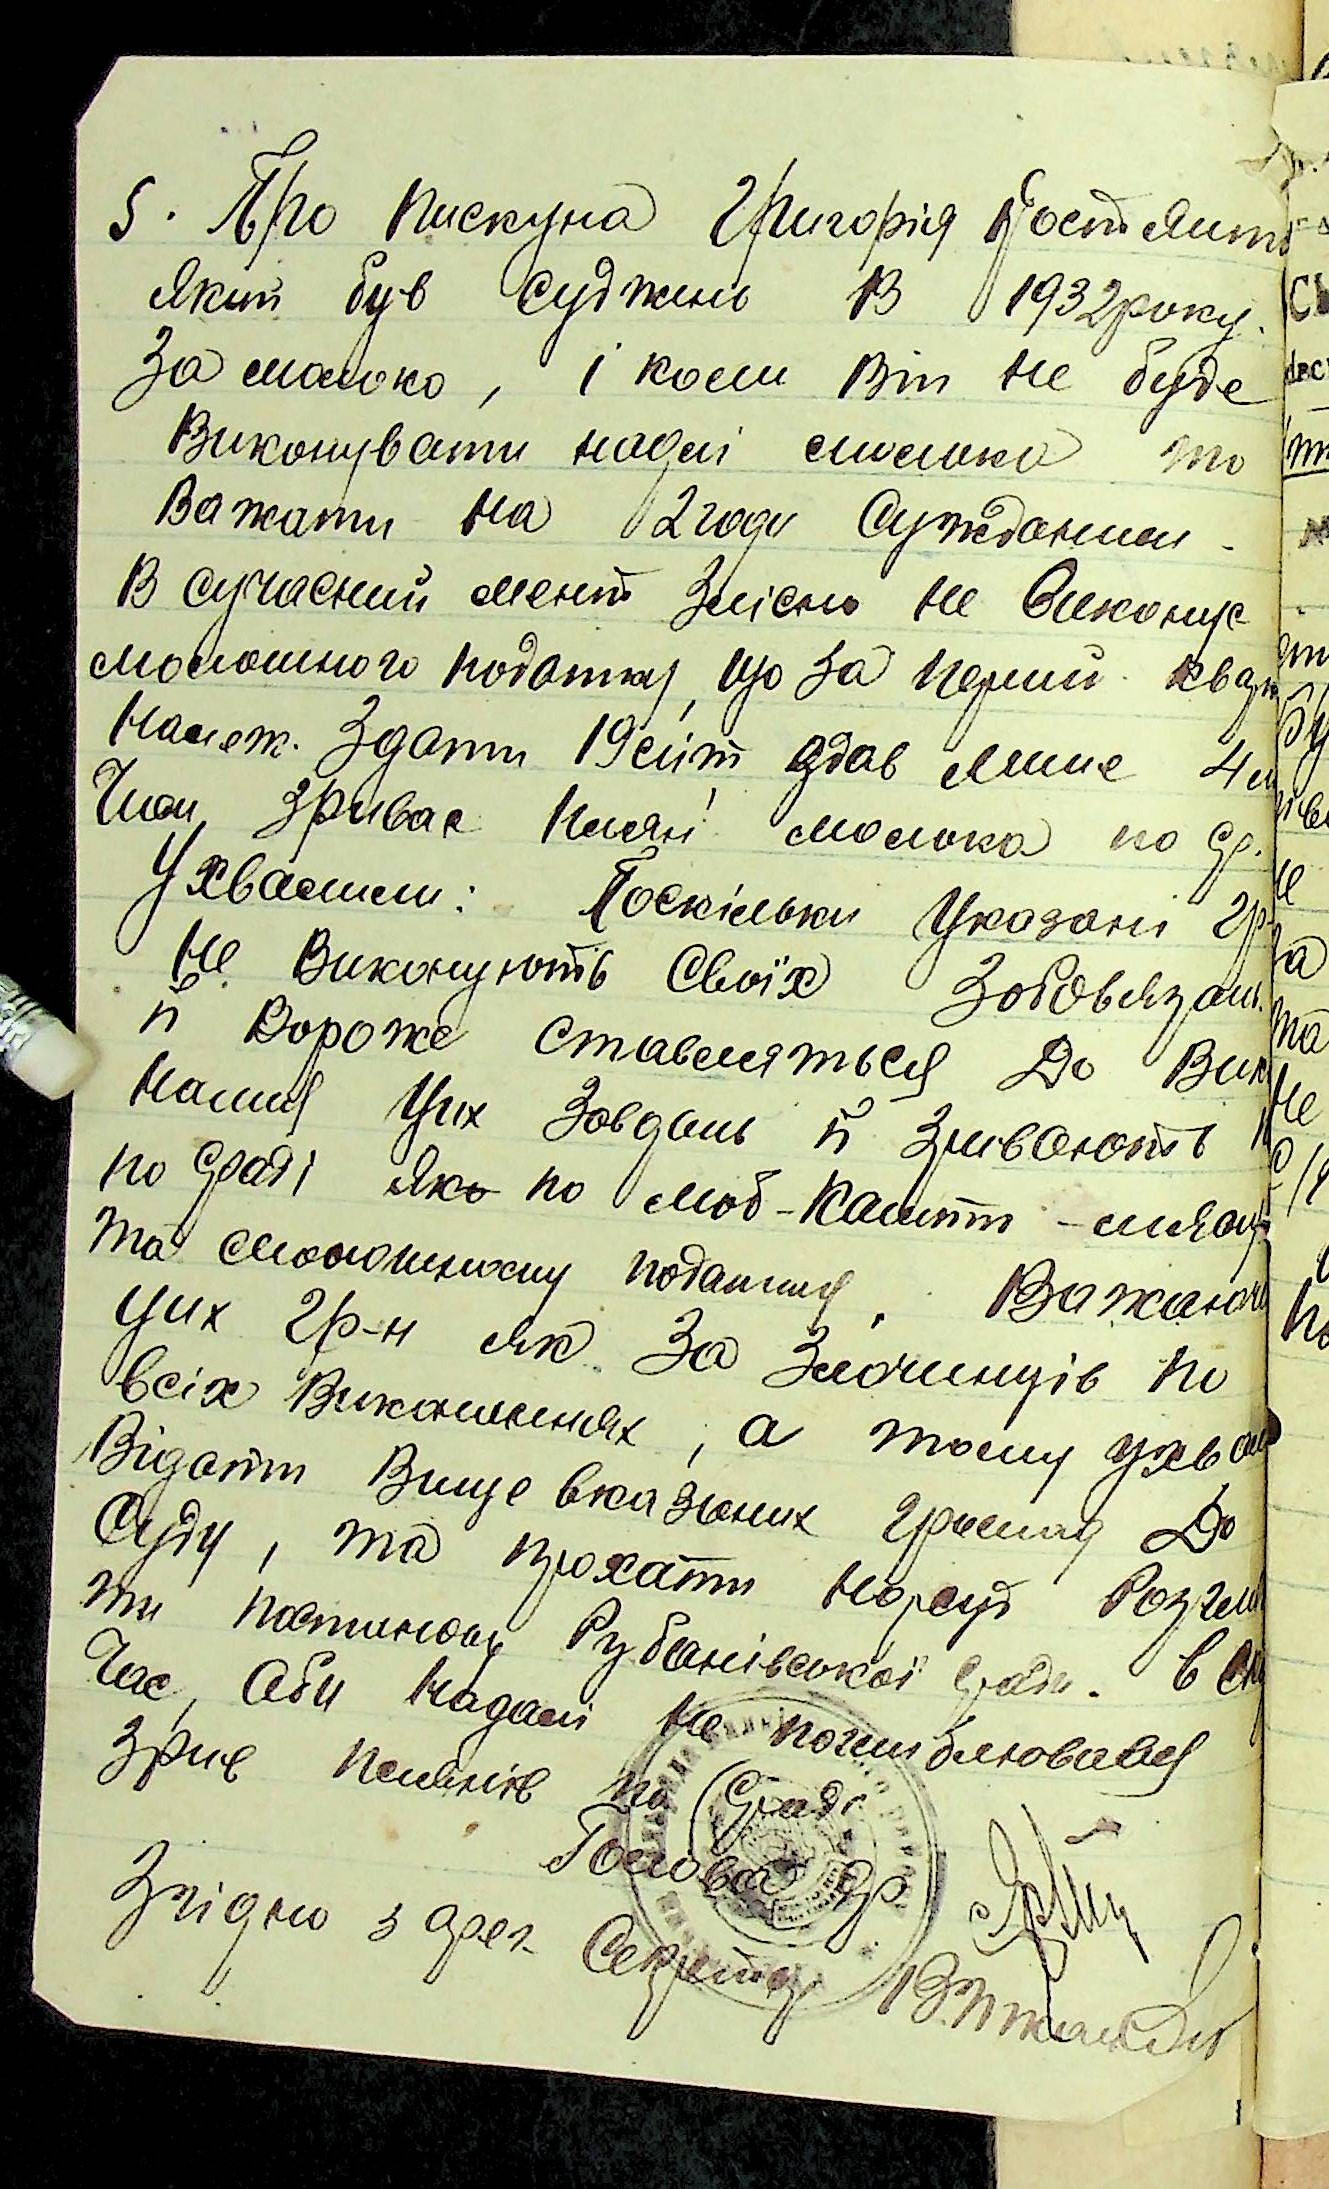 5. Про Пискуна Григорія
який був суджень в 1932 року.
за молоко, і коли він не буде
виконувати надалі молока то
важати на 2 годи сужданим.
В сучасний мент злісно не виконує
молошного податку, що за перший кварт
належ. здати 19 літ здав лише 4
Чим зриває пляні молока по с/р.
Ухвалили: Поскільки указані гр-
не виконують своїх зобовязань
й вороже ставляться до вик
нання цих завдань й зривають
по с/раді як по моб-кашт - мясу
та молошному податку. Важаючи
цих гр-н як за злочинців по
всіх виконаннях, а тому ухвал
Відати вище вказаних громад до
суду, та прохати нарсуд розгля
ти постанову Рубанівської с/ради. в
час, аби надалі не поглиблювався
зрив плянів по с/раді
Голова с/р
Згідно з ориг. Секретар